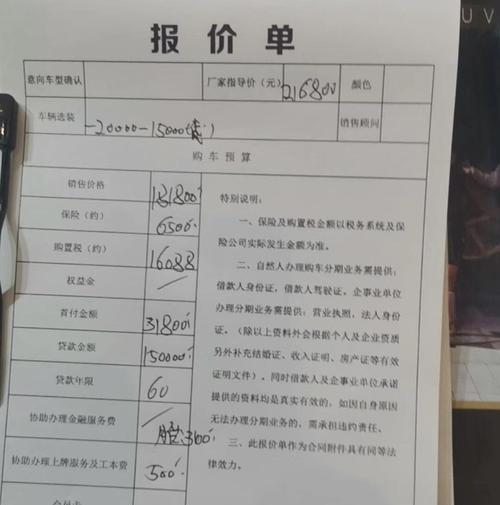 报价单
意向车型确认 厂家指导价（元） 216800 颜色
车辆选装 -20000-15000( ) 销售顾问
购车预算
销售价格 181800
保险（约） 6500
购置税（约） 16088
权益金 /
首付金额 31800
贷款金额 150000
贷款年限 60
协助办理金融服务费 /
3100
协助办理上牌服务及工本费 500
特别说明：
一、保险及购置税金额以税务系统及保
险公司实际发生金额为准。
二、自然人办理购车分期业务需提供：
借款人身份证，借款人驾驶证。企事业单位
办理分期业务需提供：营业执照，法人身份
证。（除以上资料外会根据个人及企业资质
另外补充结婚证、收入证明、房产证等有效
证明文件）。同时借款人及企事业单位承诺
提供的资料均是真实有效的，如因自身原因
无法办理分期业务的，需承担违约责任。
三、此报价单作为合同附件具有同等法
律效力。